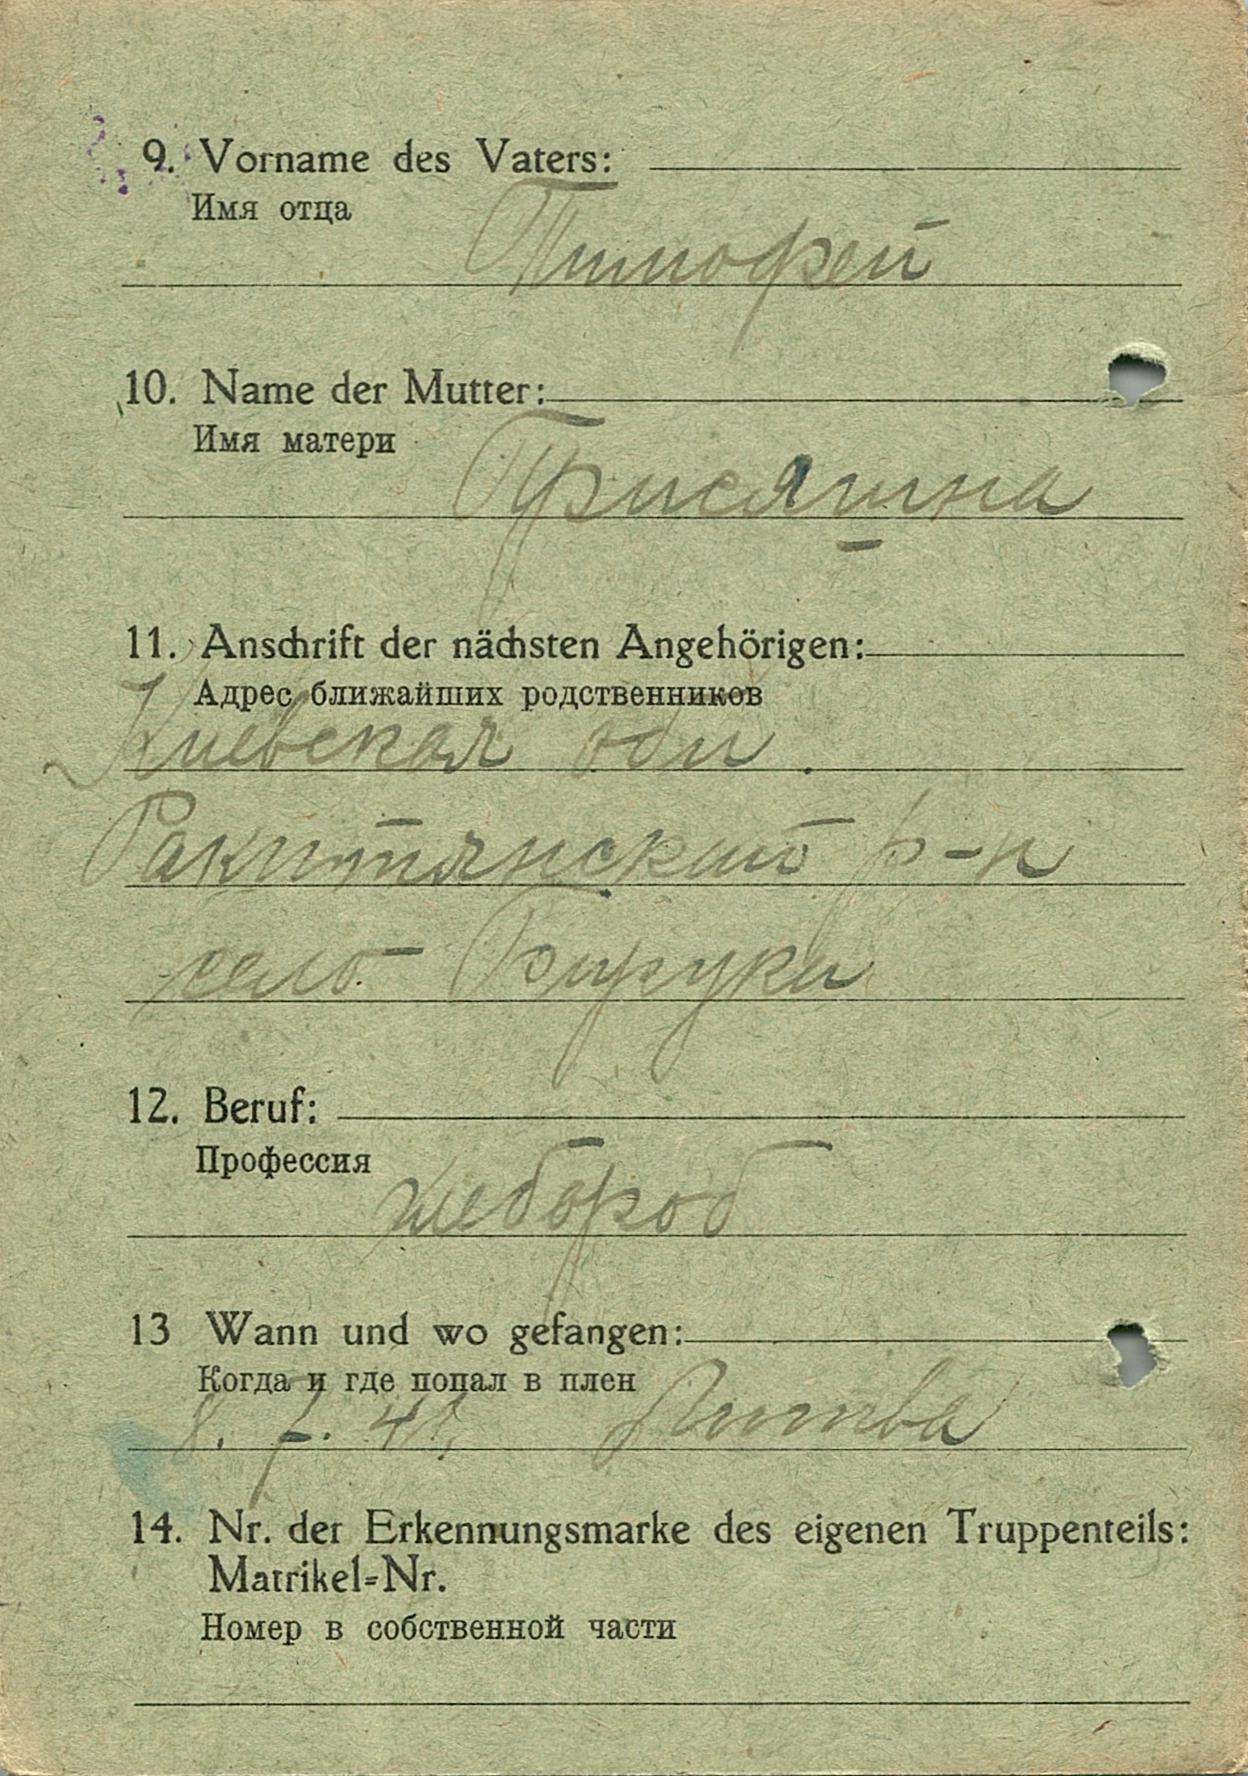 9. Vorname des Vaters:
Имя отца
Тимофей
10. Name der Mutter:
Имя матери
11. Anschrift der nächsten Angehörigen:
Адрес ближайших родственников
Киевская обл.
Ракитянский р-н
село
12. Beruf:
Профессия
хлебороб
13 Wann und wo gefangen:
Когда и где попал в плен
8. 7. 41. Литва
14. Nr. der Erkennungsmarke des eigenen Truppenteils:
Matrikel=Nr.
Номер в собственной части